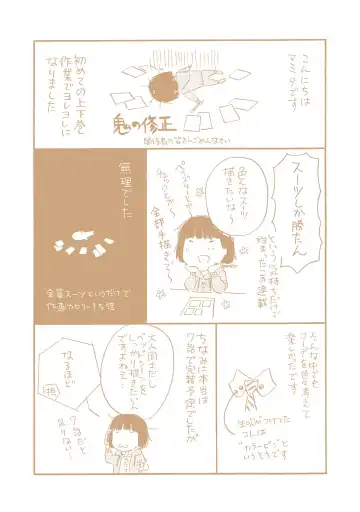 こんにちは
アミタです
初めての上下巻
作業でヨレヨレに
なりました
鬼の修正
関係者の皆さんごめんなさい
スーツしか勝たん
という気持ちだけで
始まったこの連載
色んなスーツ
描きたいな〜
全部手描きで〜
無理でした
全員スーツというだけで
作画カロリー1な倍
そんな中でも
コーデを色々考えて
楽しかったです
生吹がつけてた
コレは
"カラーピン"と
いうそうです
ちなみに本当は
7話で完結予定でしたが
大人同士だし
ベッドシーンを
しっかり描きたいん
ですよねって
なるほど
担
7話だと
足りない…